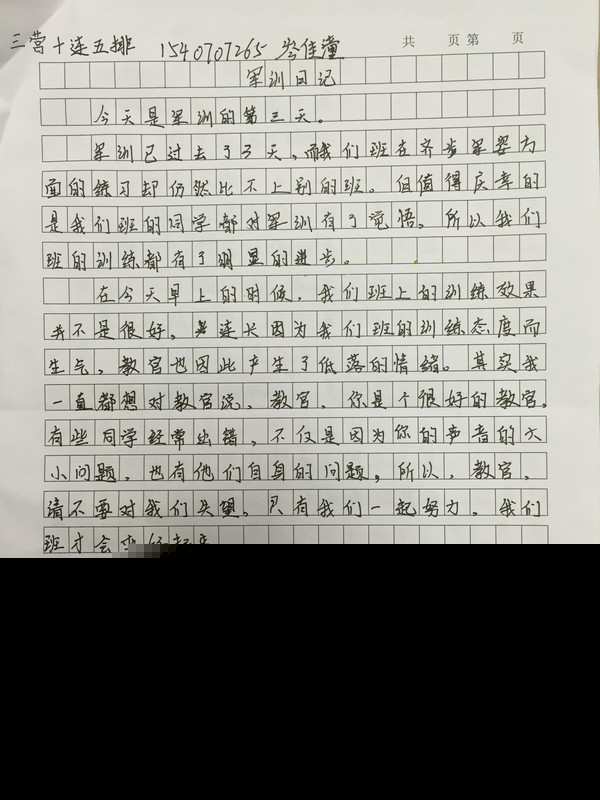 三营十连五排 1540707265 岑佳潼 共 页第 页
军训日记
今天是军训的第三天。
军训已过去了3天,而我们班在齐步军姿方
面的练习却仍然比不上别的班。但值得庆幸的
是我们班的同学都对军训有了觉悟。所以我们
班的训练都有了明显的进步。
在今天早上的时候,我们班上的训练效果
并不是很好,连长因为我们班的训练态度而
生气,教官也因此产生了低落的情绪。其实我
一直都想对教官说,教官,你是个很好的教官。
有些同学经常出错,不仅是因为你的声音的大
小问题,也有他们自身的问题,所以,教官,
请不要对我们失望。只有我们一起努力,我们
班才会